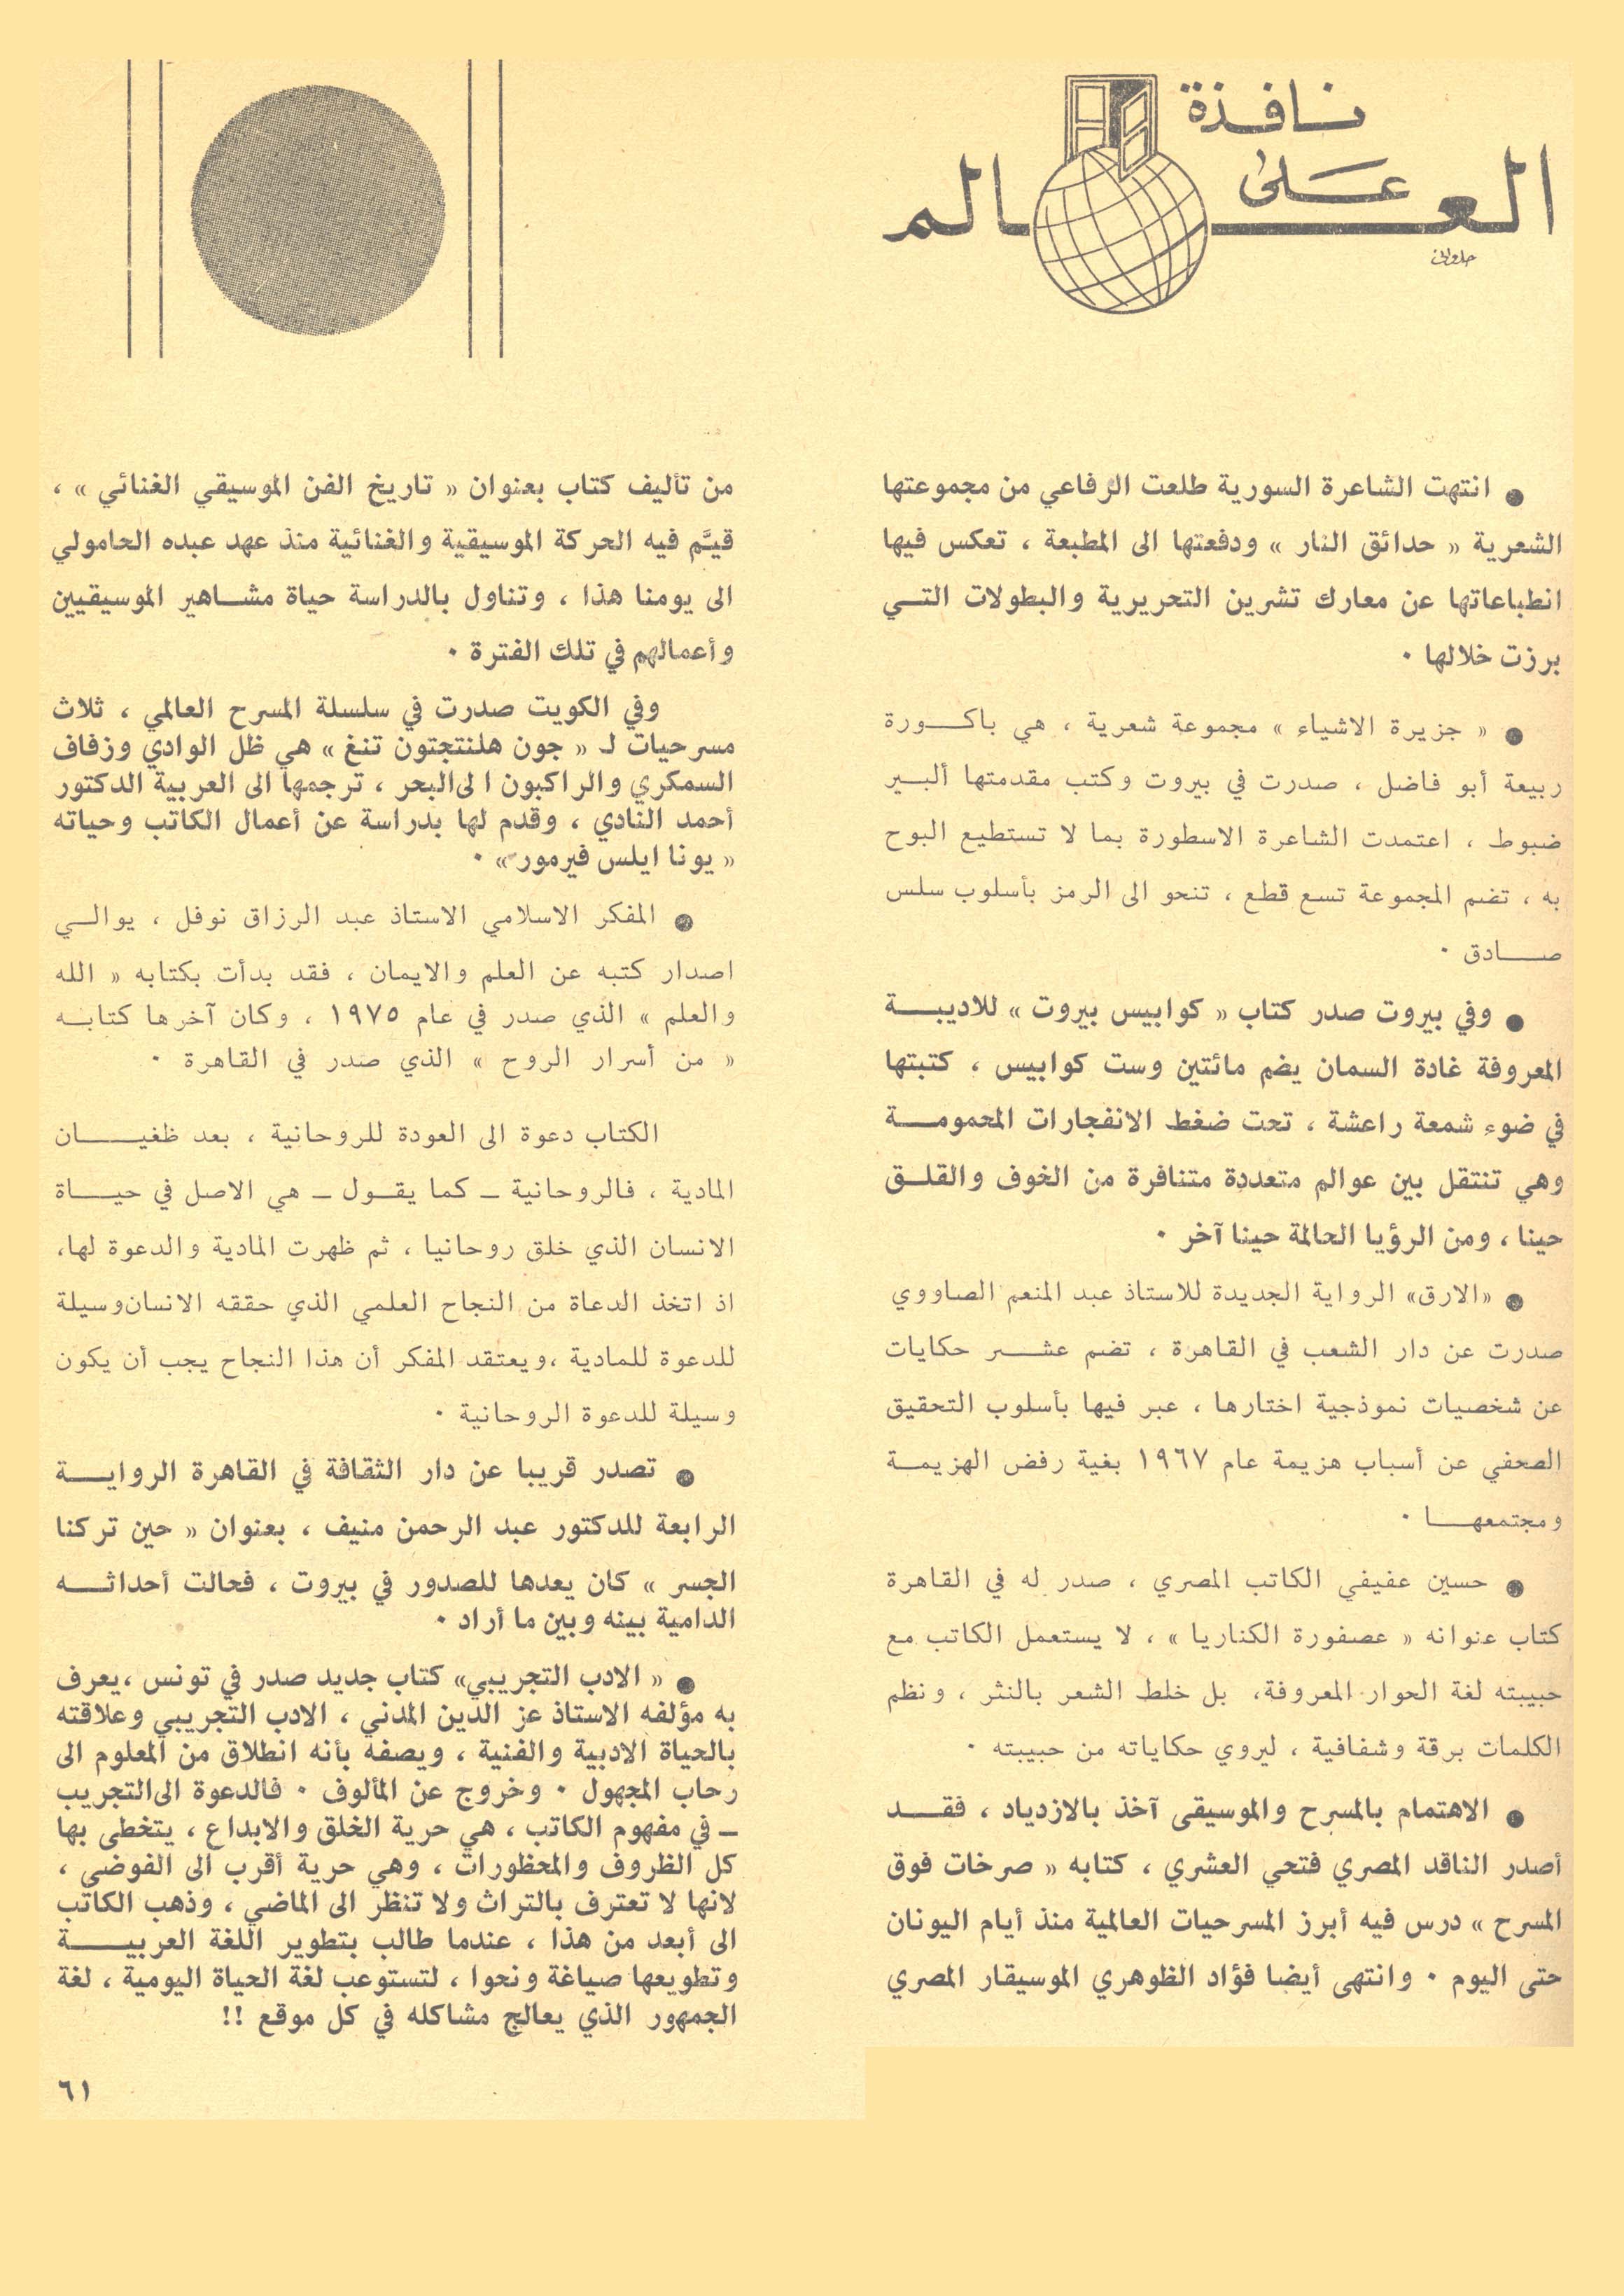 نافذة
على
العالم
● انتهت الشاعرة السورية طلعت الرفاعي من مجموعتها
الشعرية « حدائق النار » ودفعتها الى المطبعة ، تعكس فيها
انطباعاتها عن معارك تشرين التحريرية والبطولات التـي
برزت خلالها ٠
● « جزيرة الاشياء » مجموعة شعرية ، هي باكـــورة
ربيعة أبو فاضل ، صدرت في بيروت وكتب مقدمتها ألبـير
ضبوط ، اعتمدت الشاعرة الاسطورة بما لا تستطيع البوح
به ، تضم المجموعة تسع قطع ، تنحو الى الرمز بأسلوب سلس
صــــادق ٠
● وفي بيروت صدر كتاب « كوابيس بيروت » للاديبــــة
المعروفة غادة السمان يضم مائتين وست كوابيس ، كتبتها
في ضوء شمعة راعشة ، تحت ضغط الانفجارات المحمومــــة
وهي تنتقل بين عوالم متعددة متنافرة من الخوف والقلـق
حينا ، ومن الرؤيا الحالمة حينا آخر ٠
● «الارق» الرواية الجديدة للاستاذ عبد المنعم الصاووي
صدرت عن دار الشعب في القاهرة ، تضم عشـــر حكايات
عن شخصيات نموذجية اختارها ، عبر فيها بأسلوب التحقيق
الصحفي عن أسباب هزيمة عام ١٩٦٧ بغية رفض الهزيمـــة
ومجتمعهـــا ٠
● حسين عفيفي الكاتب المصري ، صدر له في القاهرة
كتاب عنوانه « عصفورة الكناريا » ، لا يستعمل الكاتب مع
حبيبته لغة الحوار المعروفة، بل خلط الشعر بالنثر ، ونظم
الكلمات برقة وشفافية ، ليروي حكاياته من حبيبته ٠
● الاهتمام بالمسرح والموسيقى آخذ بالازدياد ، فقـــد
أصدر الناقد المصري فتحي العشري ، كتابه « صرخات فوق
المسرح » درس فيه أبرز المسرحيات العالمية منذ أيام اليونان
حتى اليوم ٠ وانتهى أيضا فؤاد الظوهري الموسيقار المصري
من تأليف كتاب بعنوان « تاريخ الفن الموسيقي الغنائي » ،
قيَّم فيه الحركة الموسيقية والغنائية منذ عهد عبده الحامولي
الى يومنا هذا ، وتناول بالدراسة حياة مشــاهير الموسيقيين
وأعمالهم في تلك الفترة ٠
وفي الكويت صدرت في سلسلة المسرح العالمي ، ثلاث
مسرحيات لـ « جون هلنتجتون تنغ » هي ظل الوادي وزفاف
السمكري والراكبون الى البحر ، ترجمها الى العربية الدكتور
أحمد النادي ، وقدم لها بدراسة عن أعمال الكاتب وحياته
« يونا ايلس فيرمور » ٠
● المفكر الاسلامي الاستاذ عبد الرزاق نوفل ، يوالـي
اصدار كتبه عن العلم والايمان ، فقد بدأت بكتابه « الله
والعلم » الذي صدر في عام ١٩٧٥ ، وكان آخرها كتابـه
« من أسرار الروح » الذي صدر في القاهرة ٠
الكتاب دعوة الى العودة للروحانية ، بعد ظغيـــــان
المادية ، فالروحانية ــ كما يقـول ــ هي الاصل في حيـــاة
الانسان الذي خلق روحانيا ، ثم ظهرت المادية والدعوة لها،
اذ اتخذ الدعاة من النجاح العلمي الذي حققه الانسان وسيلة
للدعوة للمادية ،ويعتقد المفكر أن هذا النجاح يجب أن يكون
وسيلة للدعوة الروحانية ٠
● تصدر قريبا عن دار الثقافة في القاهرة الروايـــة
الرابعة للدكتور عبد الرحمن منيف ، بعنوان « حين تركنا
الجسر » كان يعدها للصدور في بيروت ، فحالت أحداثـــه
الدامية بينه وبين ما أراد ٠
● « الادب التجريبي» كتاب جديد صدر في تونس ،يعرف
به مؤلفه الاستاذ عز الدين المدني ، الادب التجريبي وعلاقته
بالحياة الادبية والفنية ، ويصفه بأنه انطلاق من المعلوم الى
رحاب المجهول ٠ وخروج عن المألوف ٠ فالدعوة الى التجريب
ــ في مفهوم الكاتب ، هي حرية الخلق والابداع ، يتخطى بها
كل الظروف والمحظورات ، وهي حرية أقرب الى الفوضى ،
لانها لا تعترف بالتراث ولا تنظر الى الماضي ، وذهب الكاتب
الى أبعد من هذا ، عندما طالب بتطوير اللغة العربيـــــة
وتطويعها صياغة ونحوا ، لتستوعب لغة الحياة اليومية ، لغة
الجمهور الذي يعالج مشاكله في كل موقع !!
٦١